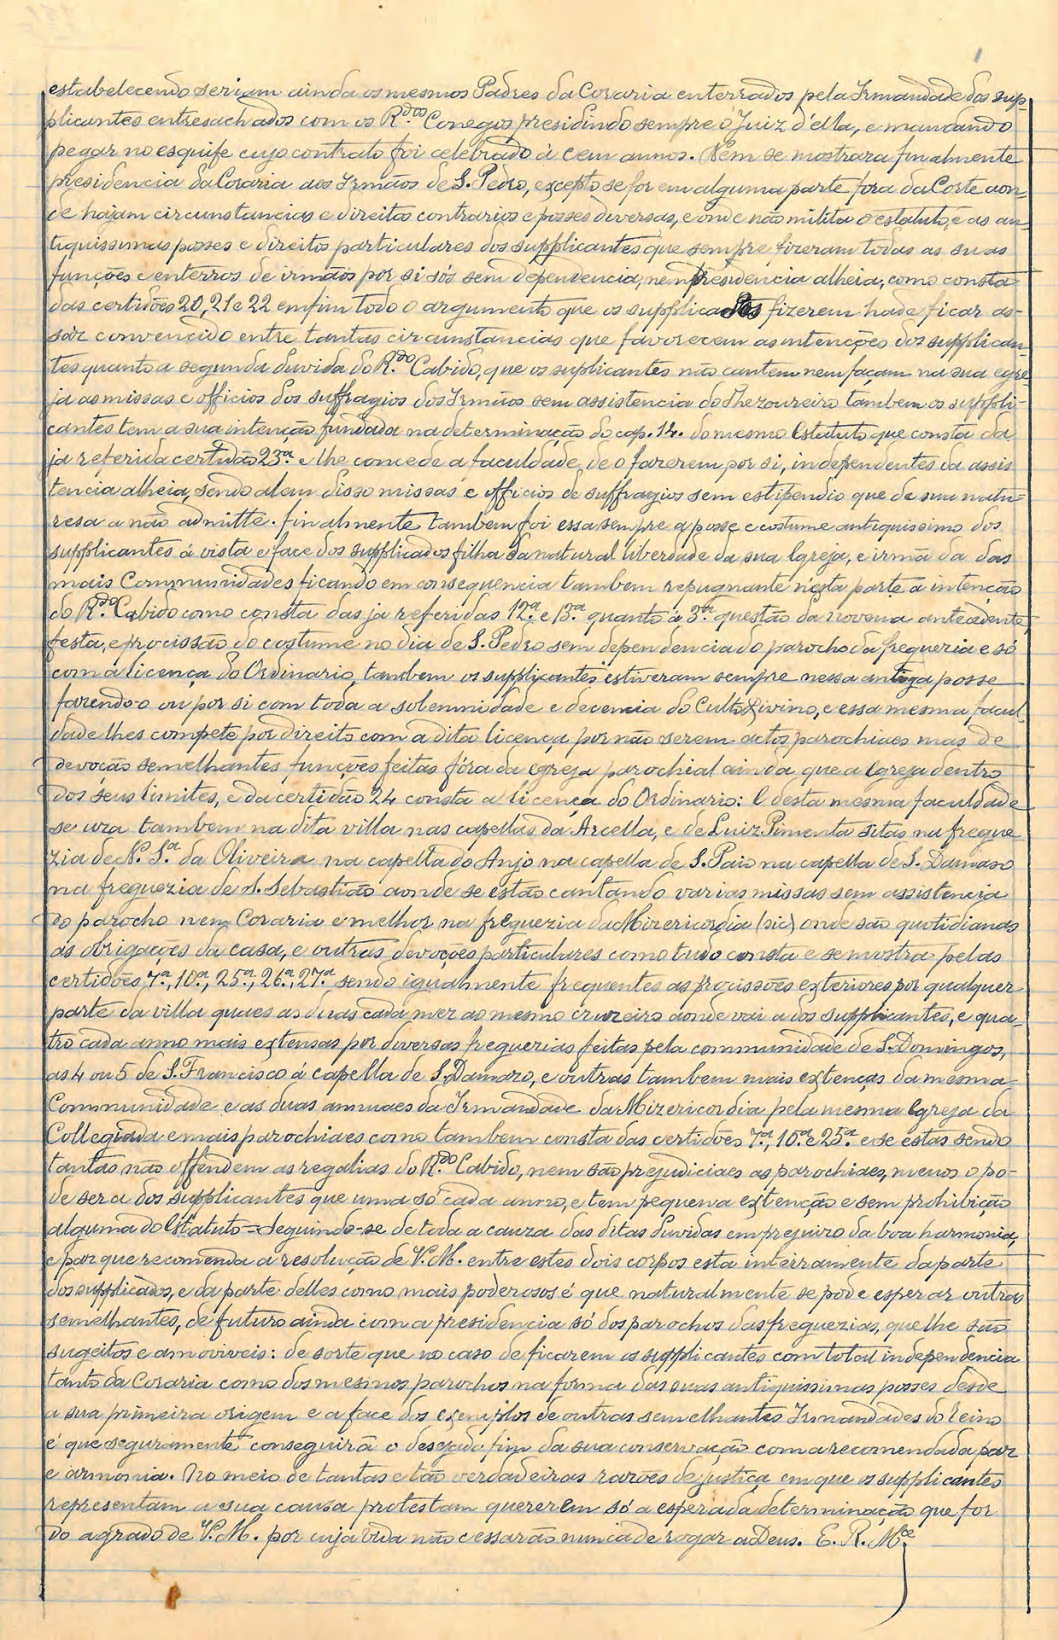 estabelecendo seriam ainda os mesmos Padres da Coraria enterrados pela Irmandade dos sup-
plicantes entresachados com os R.dos Conegos presidindo sempre o Juiz d'ella, e mandando
pegar no esquife cujo contrato foi celebrado á cem annos. Nem se mostrara finalmente
presidencia da Coraria aos Irmãos de S. Pedro, excepto se for em alguma parte fora da Corte aon-
de hajam circunstancias e direitos contrarios e posses diversas, e onde não milita o estatuto, e as an-
tiquissimas posses e direitos particulares dos supplicantes que sempre fizeram todas as suas
funções e enterros de irmãos por si sós sem dependencia, nem presidencia alheia, como consta
das certidões 20, 21 e 22 emfim todo o argumento que os supplicados fizerem hade ficar as-
sáz convencido entre tantas circunstancias que favorecem as intenções dos supplican-
tes quanto a segunda duvida do R.do Cabido, que os suplicantes não cantem nem façam na sua egre-
ja as missas e officios dos suffragios dos Irmãos sem assistencia do Thezoureiro tambem os suppli-
cantes tem a sua intenção fundada na determinação do cap. 14. do mesmo Estatuto que consta da
ja referida certidão 23.ª e lhe concede a faculdade de o fazerem por si, independentes da assis
tencia alheia, sendo alem disso missas e officios de suffragios sem estipendio que de sua natu-
resa a não admitte. finalmente tambem foi essa sempre a posse e costume antiquissimo dos
supplicantes á vista e face dos supplicados filha da natural liberdade da sua Igreja, e irmã da das
mais Communidades ficando em consequencia tambem repugnante n'esta parte a intenção
do R.do Cabido como consta das ja referidas 12.ª e 13.ª quanto á 3.ª questão da novena antecedente
festa, e procissão do costume no dia de S. Pedro sem dependencia do parocho da freguezia e só
com a licença do Ordinario, tambem os supplicantes estiveram sempre nessa antiga posse
fazendo-o ou por si com toda a solemnidade e decencia do Culto Divino, e essa mesma facul-
dade lhes compete por direito com a dita licença por não serem actos parochiaes mas de
devoção semelhantes funções feitas fóra da egreja parochial ainda que a Igreja dentro
dos seus limites, e da certidão 24 consta a licença do Ordinario: E desta mesma faculdade
se uza tambem na dita villa nas capellas da Arcella, e de Luiz Pimenta sitas na fregue
zia de N. S.ª da Oliveira na capella do Anjo na capella de S. Paio na capella de S. Damaso
na freguezia de S. Sebastião aonde se estão cantando varias missas sem assistencia
do parocho nem Coraria e melhor na freguezia da Misericordia (sic) onde são quotidianas
as obrigações da casa, e outras devoções particulares como tudo consta e se mostra pelas
certidões 7.ª, 10.ª, 25.ª, 26.ª, 27.ª sendo igualmente frequentes as procissões exteriores por qualquer
parte da villa quaes as duas cada mez ao mesmo cruzeiro aonde vai a dos supplicantes, e qua-
tro cada anno mais extensas por diversas freguezias feitas pela communidade de S. Domingos,
as 4 ou 5 de S. Francisco á capella de S. Damazo, e outras tambem mais extenças da mesma
Communidade e as duas annuaes da Irmandade da Misericordia pela mesma Egreja da
Collegiada e mais parochiaes como tambem consta das certidões 7.ª, 10.ª e 25.ª e se estas sendo
tantas não offendem as regalias do R.do Cabido, nem são prejudiciaes as parochiaes, menos o po-
de ser a dos supplicantes que uma só cada anno, e tem pequena extenção e sem prohibição
alguma do Estatuto = Seguindo-se de toda a cauza das ditas duvidas em prejuizo da boa harmonia,
e paz que recomenda a resolução de V. M. entre estes dois corpos esta inteiramente da parte
dos supplicados, e da parte delles como mais poderosos é que naturalmente se pode esperar outras
semelhantes, de futuro ainda com a presidencia só dos parochos das freguezias, que lhe são
sugeitos e amoviveis: de sorte que no caso de ficarem os supplicantes com total independencia
tanto da Coraria como dos mesmos parochos na forma das suas antiquissimas posses desde
a sua primeira origem e a face dos exemplos de outras semelhantes Irmandades do reino
é que seguramente conseguirá o desejado fim da sua conservação com a recomendada paz
e armonia. No meio de tantas e tão verdadeiras razoes de justiça em que os supplicantes
representam a sua causa protestam quererem só a esperada determinação que for
do agrado de V. M. por cuja vida não cessarão nunca de rogar a Deus. E. R. M.ce